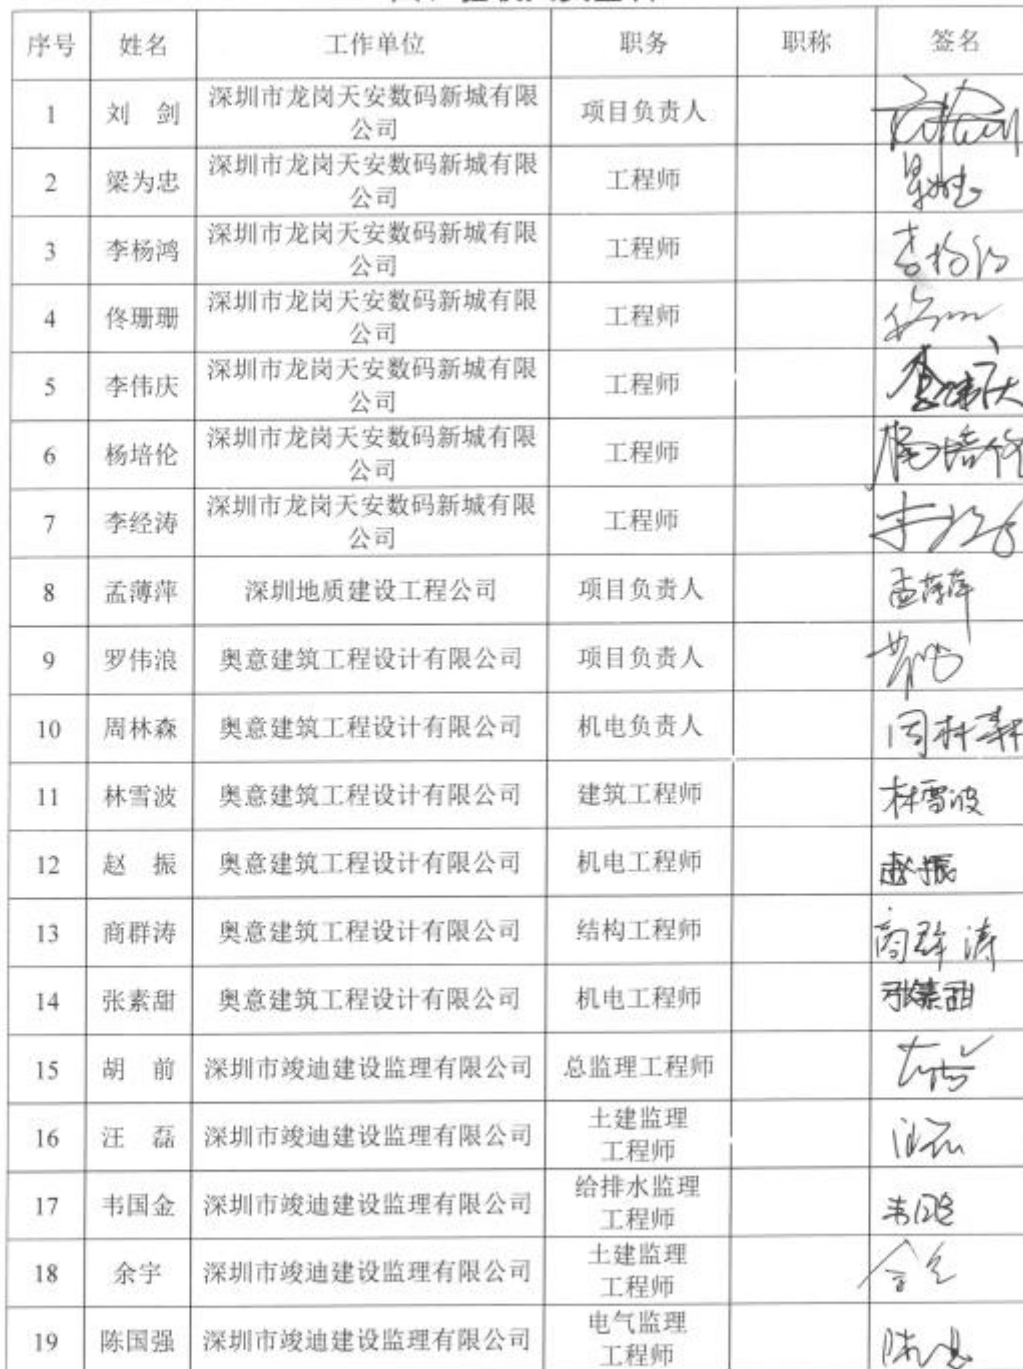 序号 姓名 工作单位 职务 职称 签名
1 刘 剑 深圳市龙岗天安数码新城有限公司 项目负责人
2 梁为忠 深圳市龙岗天安数码新城有限公司 工程师
3 李杨鸿 深圳市龙岗天安数码新城有限公司 工程师
4 佟珊珊 深圳市龙岗天安数码新城有限公司 工程师
5 李伟庆 深圳市龙岗天安数码新城有限公司 工程师 李伟庆
6 杨培伦 深圳市龙岗天安数码新城有限公司 工程师 杨培伦
7 李经涛 深圳市龙岗天安数码新城有限公司 工程师
8 孟薄萍 深圳地质建设工程公司 项目负责人
9 罗伟浪 奥意建筑工程设计有限公司 项目负责人
10 周林森 奥意建筑工程设计有限公司 机电负责人 周林森
11 林雪波 奥意建筑工程设计有限公司 建筑工程师 林雪波
12 赵 振 奥意建筑工程设计有限公司 机电工程师 赵振
13 商群涛 奥意建筑工程设计有限公司 结构工程师 商群涛
14 张素甜 奥意建筑工程设计有限公司 机电工程师 张素甜
15 胡 前 深圳市竣迪建设监理有限公司 总监理工程师
16 汪 磊 深圳市竣迪建设监理有限公司 土建监理工程师
17 韦国金 深圳市竣迪建设监理有限公司 给排水监理工程师
18 余宇 深圳市竣迪建设监理有限公司 土建监理工程师
19 陈国强 深圳市竣迪建设监理有限公司 电气监理工程师